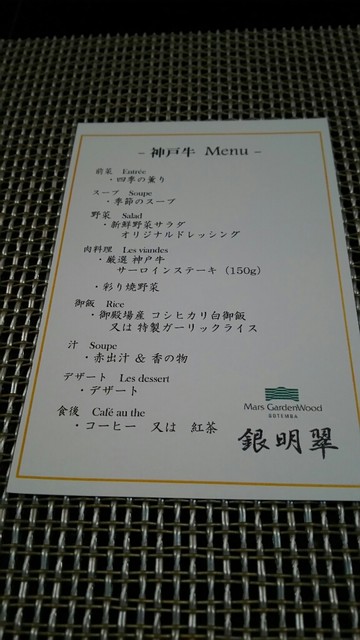 - 神戸牛 Menu -
前菜 Entrée
・四季の薫り
スープ Soupe
・季節のスープ
野菜 Salad
・新鮮野菜サラダ
オリジナルドレッシング
肉料理 Les viandes
・厳選 神戸牛
サーロインステーキ（150g）
・彩り焼野菜
御飯 Rice
・御殿場産 コシヒカリ白御飯
又は 特製ガーリックライス
汁 Soupe
・赤出汁 & 香の物
デザート Les dessert
・デザート
食後 Café au the
・コーヒー 又は 紅茶
Mars GardenWood
GOTEMBA
銀明翠